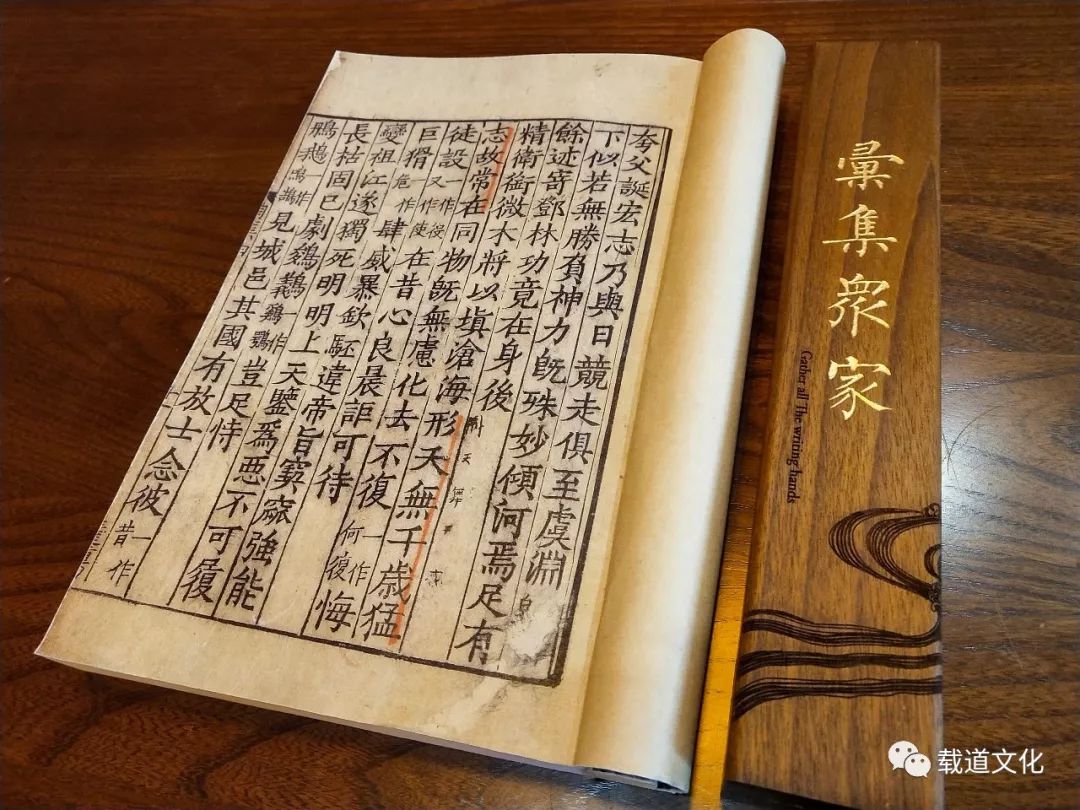 夸父誕宏志乃與日競走俱至虞淵
下似若無勝負神力旣殊妙傾河焉足有
餘迹寄鄧林功竟在身後
精衛銜微木將以塡滄海形天無千歲猛
志故常在同物旣無慮化去不復一作何復悔
徒設一作役又作使在昔心良晨詎可待
巨猾一作危肆威暴欽駓違帝旨窫窳強能
變祖江遂獨死明明上天鑒爲惡不可履
長枯固已劇一作豈足恃
見城邑其國有放士念彼一作昔
彙集眾家
Gather all The writing hands
载道文化